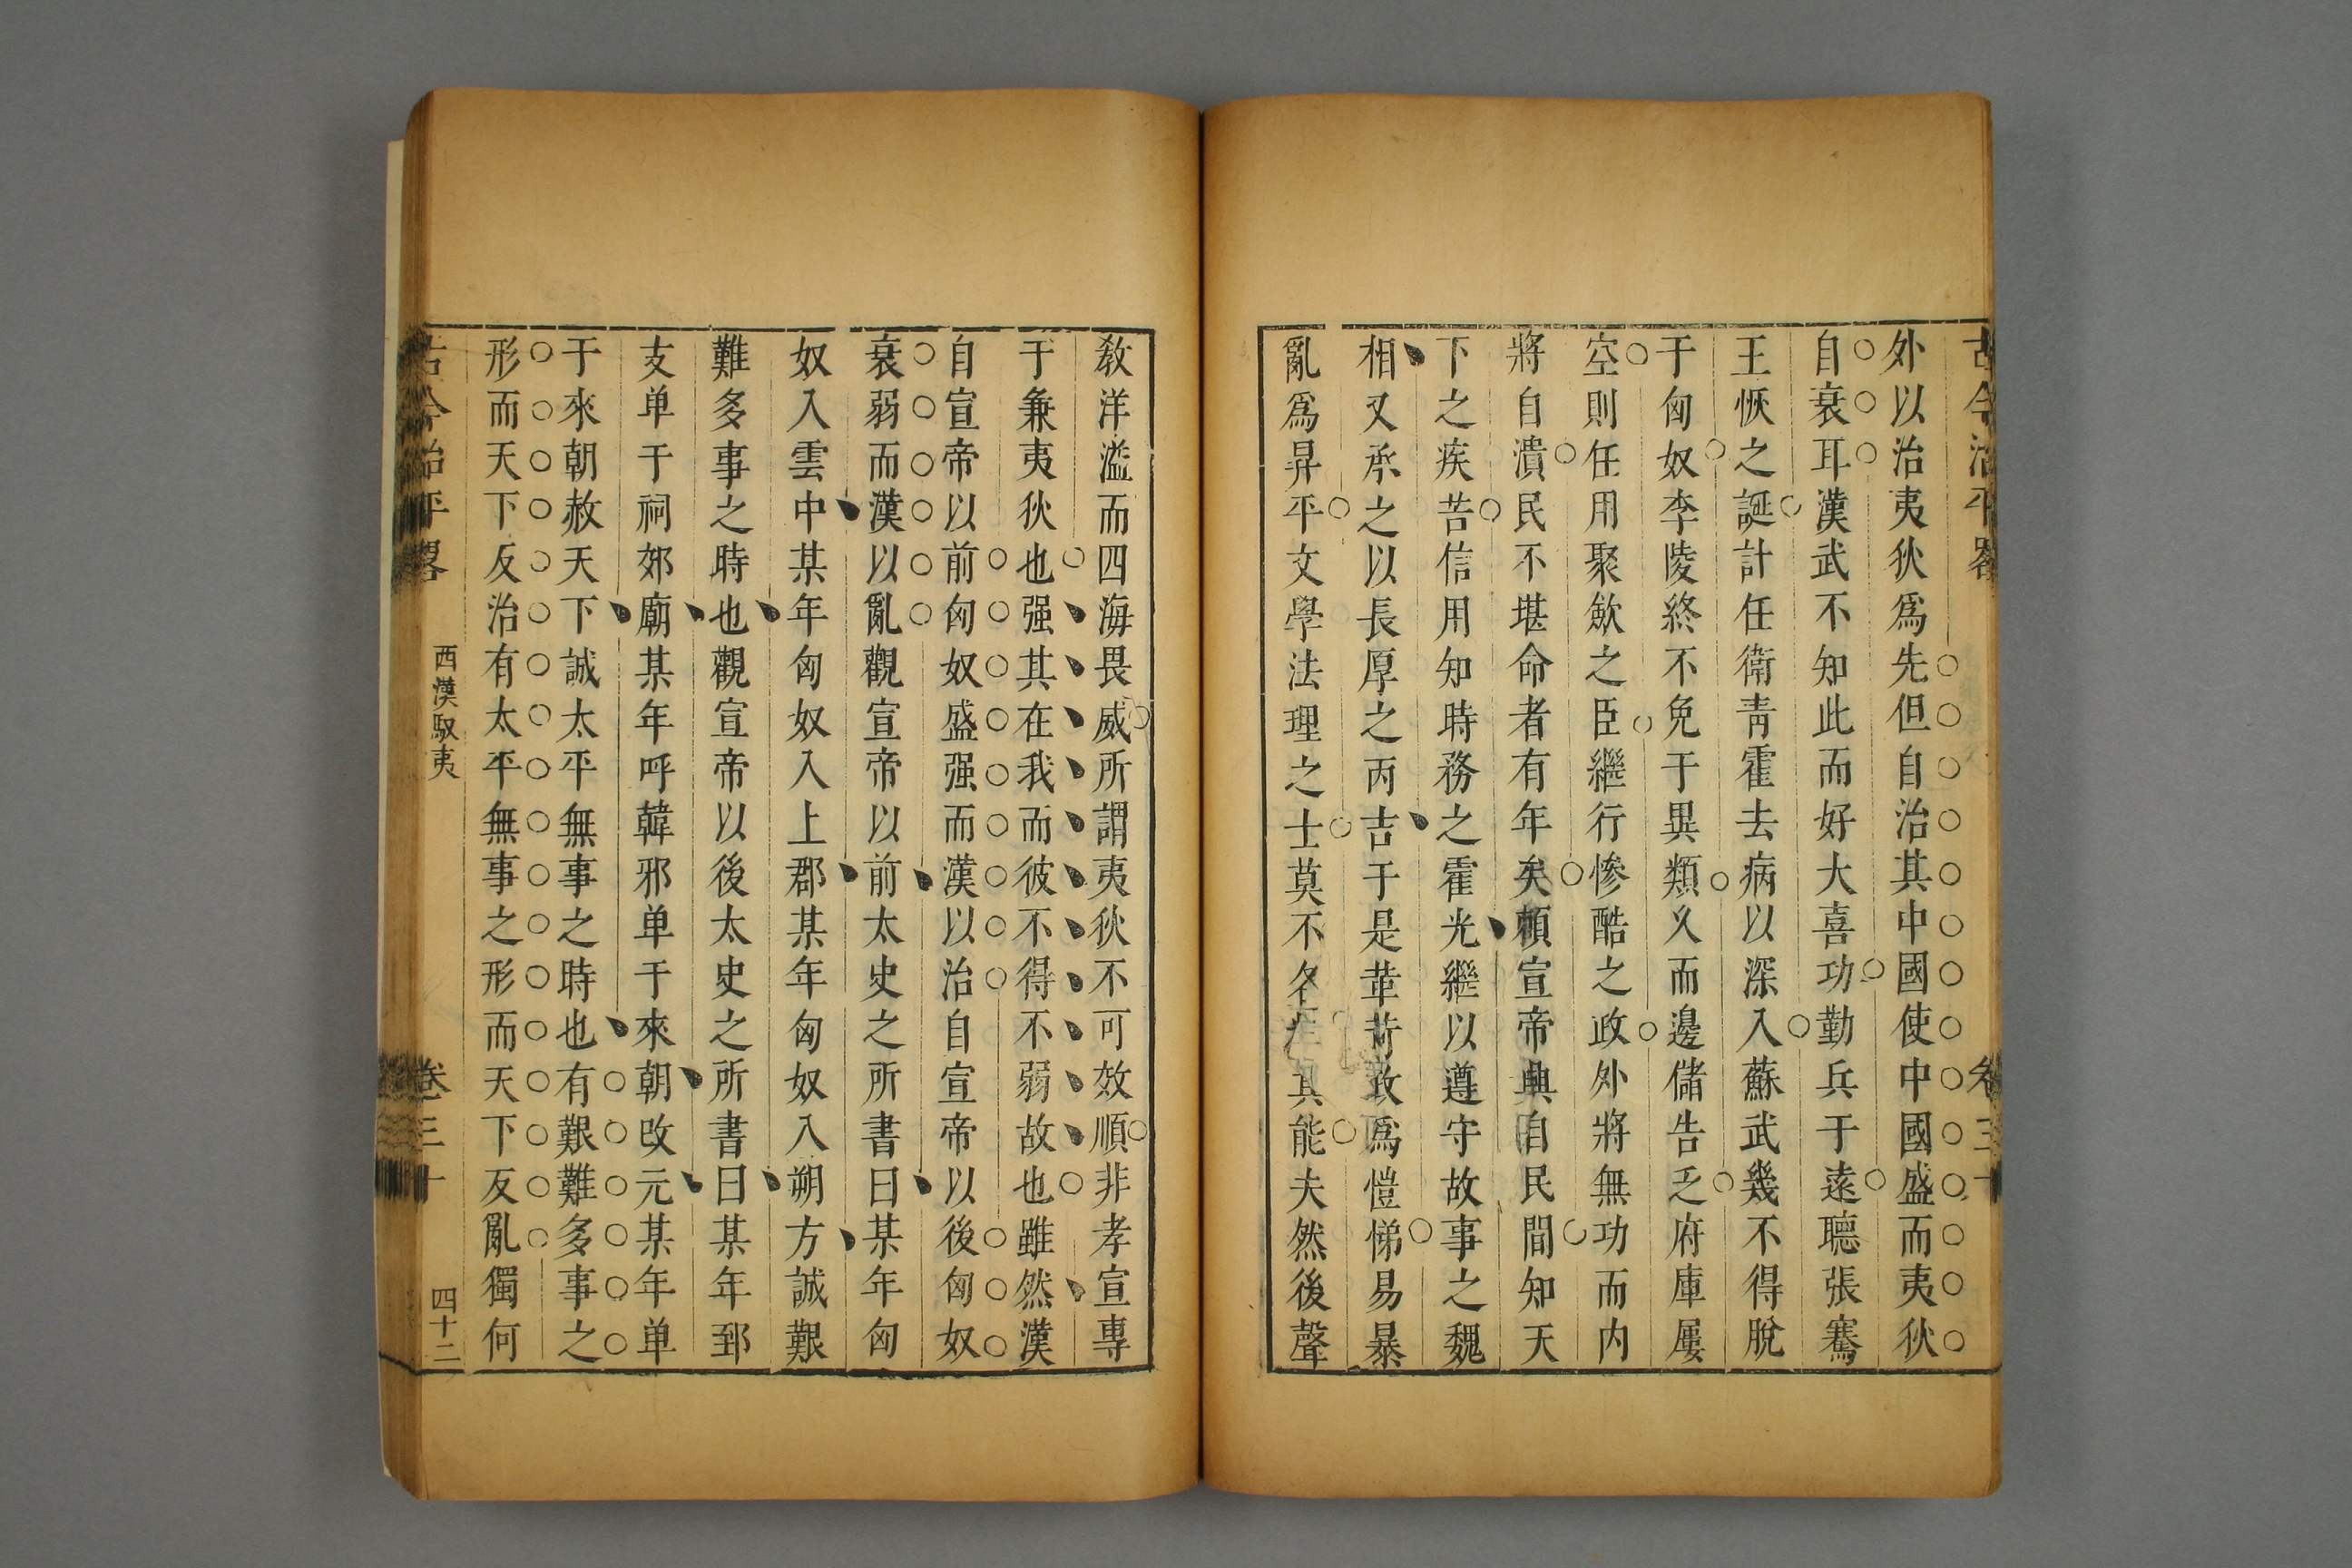 古今治平畧
卷三十
外以治夷狄爲先但自治其中國使中國盛而夷狄
自衰耳漢武不知此而好大喜功勤兵于遠聽張騫
王恢之誕計任衛靑霍去病以深入蘇武幾不得脫
于匈奴李陵終不免于異類久而邊儲告乏府庫屢
空則任用聚歛之臣繼行慘酷之政外將無功而内
將自潰民不堪命者有年矣頼宣帝興自民間知天
下之疾苦信用知時務之霍光繼以遵守故事之魏
相又承之以長厚之丙吉于是革苛政爲愷悌易暴
亂爲昇平文學法理之士莫不各其能夫然後聲
敎洋溢而四海畏威所謂夷狄不可效順非孝宣專
于兼夷狄也强其在我而彼不得不弱故也雖然漢
自宣帝以前匈奴盛强而漢以治自宣帝以後匈奴
衰弱而漢以亂觀宣帝以前太史之所書曰某年匈
奴入雲中某年匈奴入上郡某年匈奴入朔方誠艱
難多事之時也觀宣帝以後太史之所書曰某年郅
支单于祠郊廟某年呼韓邪单于來朝改元某年单
于來朝赦天下誠太平無事之時也有艱難多事之
形而天下反治有太平無事之形而天下反亂獨何
古今治平畧
西漢馭夷
卷三十
四十二